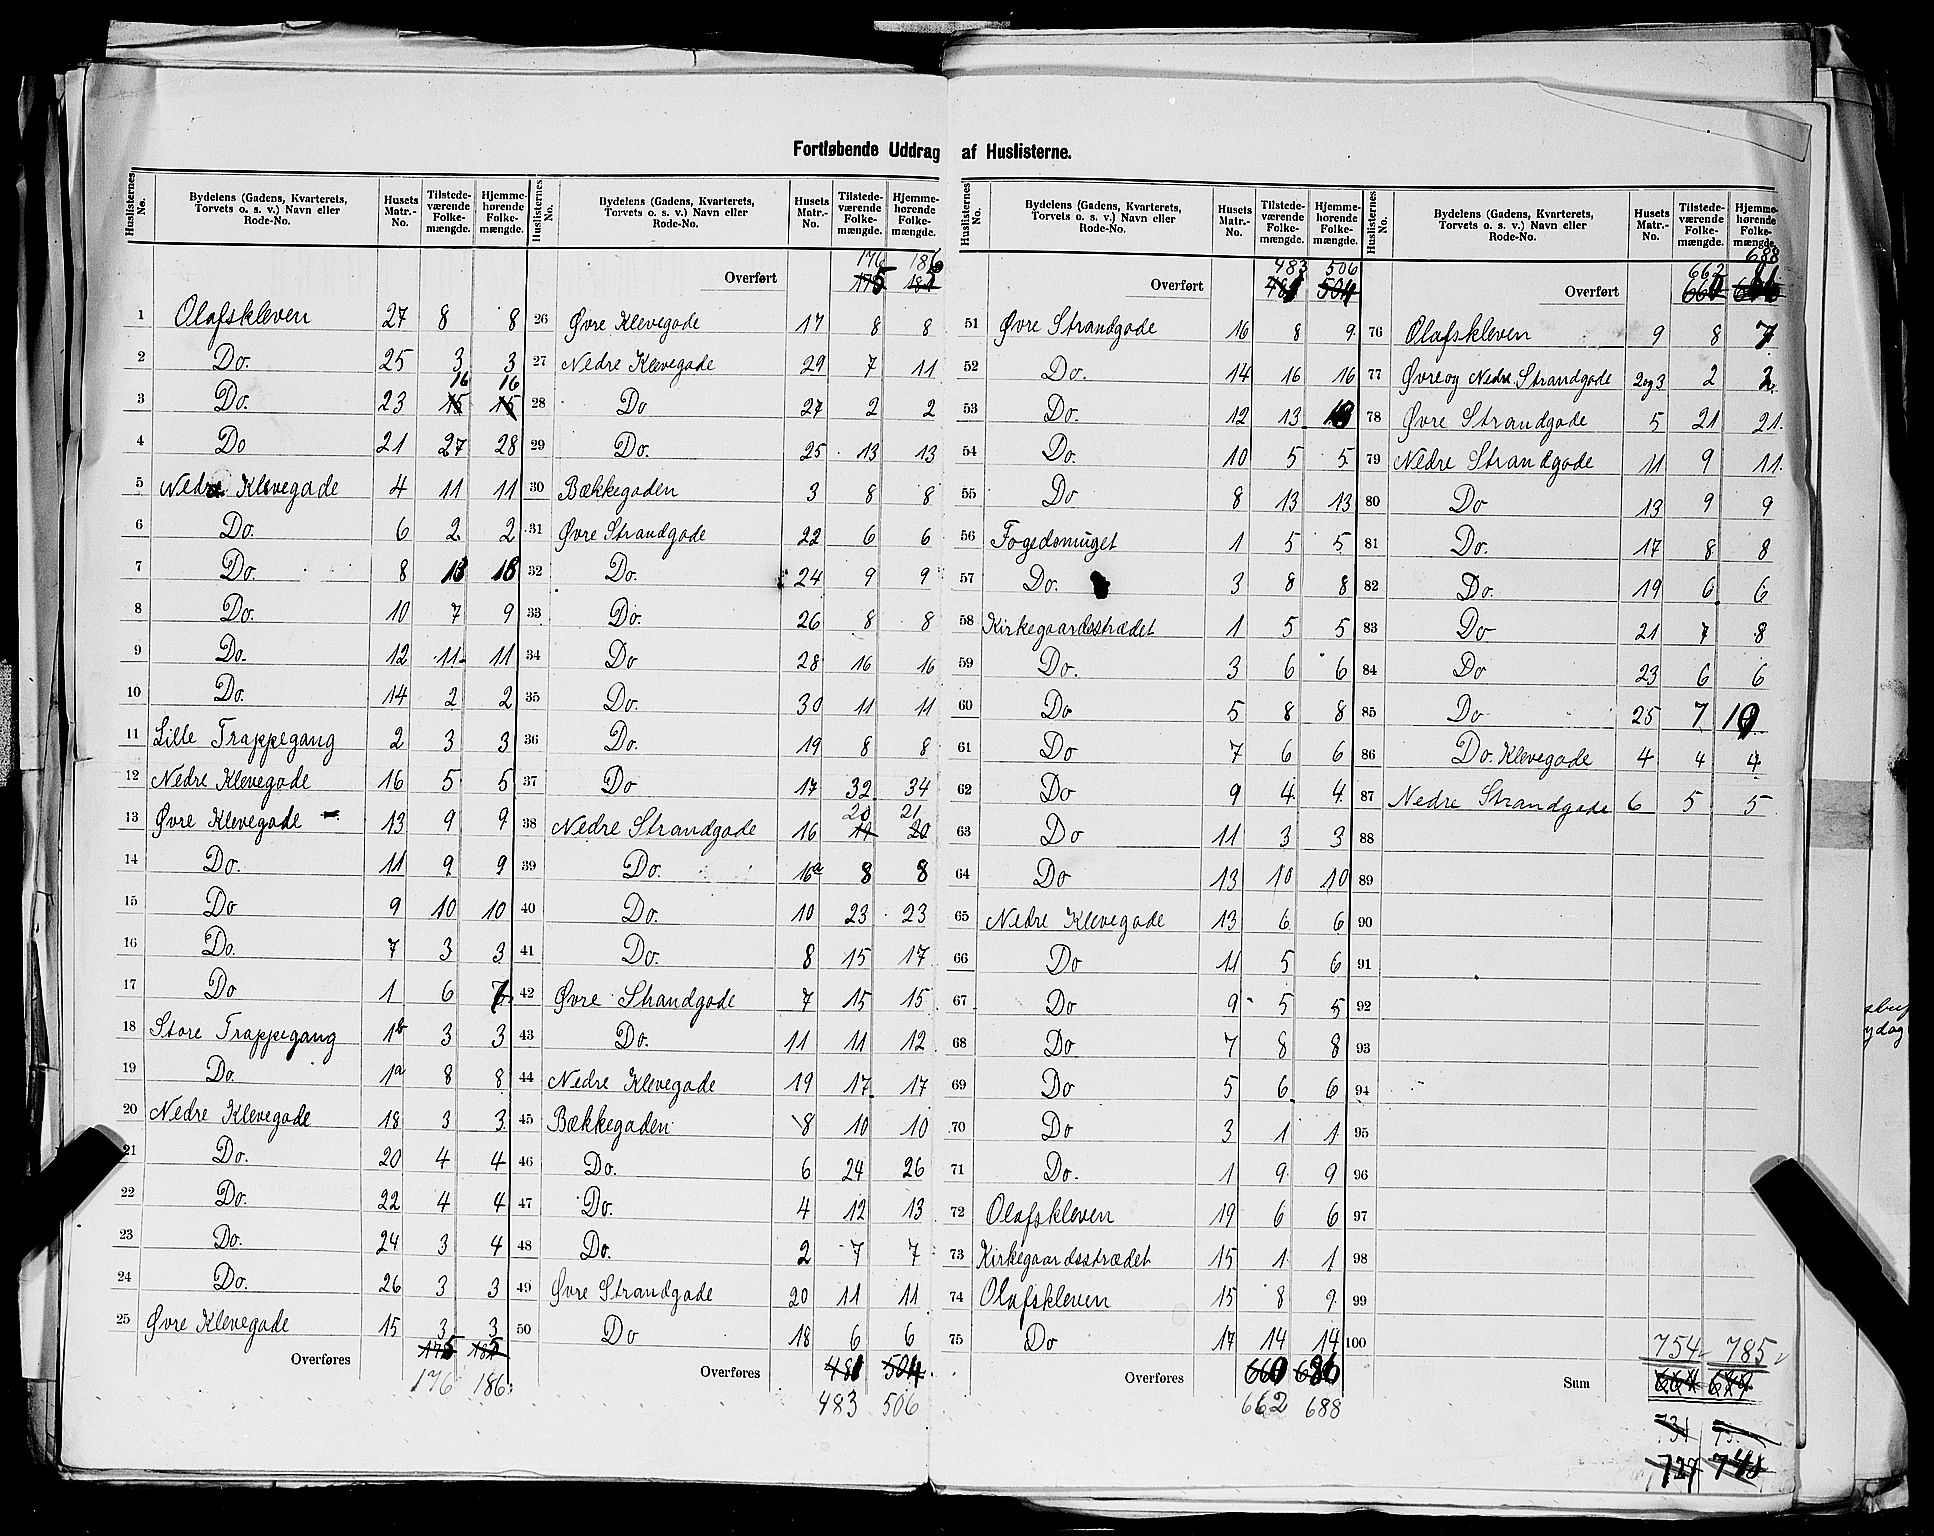 Fortløbende Uddrag af Huslisterne.
Huslisternes No. | Bydelens (Gadens, Kvarterets, Torvets o. s. v.) Navn eller Rode-No. | Husets Matr.-No. | Tilstedeværende Folkemængde. | Hjemmehørende Folkemængde.
1 Olafskleven 27 8 8
2 Do. 25 3 3
3 Do. 23 16 16
4 Do 21 27 28
5 Nedre Klevegade 4 11 11
6 Do. 6 2 2
7 Do. 8 18
8 Do. 10 7 9
9 Do. 12 11 11
10 Do. 14 2 2
11 Lille Trappegang 2 3 3
12 Nedre Klevegade 16 5 5
13 Øvre Klevegade 13 9 9
14 Do. 11 9 9
15 Do 9 10 10
16 Do. 7 3 3
17 Do 1 6 7
18 Store Trappegang 1b 3 3
19 Do. 1a 8 8
20 Nedre Klevegade 18 3 3
21 Do. 20 4 4
22 Do. 22 4 4
23 Do. 24 3 4
24 Do. 26 3 3
25 Øvre Klevegade 15 3 3
Overføres 175 185
176 186
Huslisternes No. | Bydelens (Gadens, Kvarterets, Torvets o. s. v.) Navn eller Rode-No. | Husets Matr.-No. | Tilstedeværende Folkemængde. | Hjemmehørende Folkemængde.
176 186
Overført 175
26 Øvre Klevegade 17 8 8
27 Nedre Klevegade 29 7 11
28 Do 27 2 2
29 Do. 25 13 13
30 Bækkegaden 3 8 8
31 Øvre Strandgade 22 6 6
32 Do. 24 9 9
33 Do. 26 8 8
34 Do 28 16 16
35 Do. 30 11 11
36 Do. 19 8 8
37 Do 17 32 34
20 21
38 Nedre Strandgade 16 19 20
39 Do. 16a 8 8
40 Do. 10 23 23
41 Do. 8 15 17
42 Øvre Strandgade 7 15 15
43 Do. 11 11 12
44 Nedre Klevegade 19 17 17
45 Bækkegaden 8 10 10
46 Do. 6 24 26
47 Do. 4 12 13
48 Do. 2 7 7
49 Øvre Strandgade 20 11 11
50 Do 18 6 6
Overføres 481 504
483 506
Huslisternes No. | Bydelens (Gadens, Kvarterets, Torvets o. s. v.) Navn eller Rode-No. | Husets Matr.-No. | Tilstedeværende Folkemængde. | Hjemmehørende Folkemængde.
483 506
Overført 481 504
51 Øvre Strandgade 16 8 9
52 Do. 14 16 16
53 Do. 12 13
54 Do. 10 5 5
55 Do 8 13 13
56 Fogedsmuget 1 5 5
57 Do. 3 8 8
58 Kirkegaardsstrædet 1 5 5
59 Do. 3 6 6
60 Do 5 8 8
61 Do 7 6 6
62 Do 9 4 4
63 Do 11 3 3
64 Do 13 10 10
65 Nedre Klevegade 13 6 6
66 Do 11 5 6
67 Do 9 5 5
68 Do 7 8 8
69 Do 5 6 6
70 Do 3 1 1
71 Do. 1 9 9
72 Olafskleven 19 6 6
73 Kirkegaardsstrædet 15 1 1
74 Olafskleven 15 8 9
75 Do 17 14 14
Overføres 660 686
662 688
Huslisternes No. | Bydelens (Gadens, Kvarterets, Torvets o. s. v.) Navn eller Rode-No. | Husets Matr.-No. | Tilstedeværende Folkemængde. | Hjemmehørende Folkemængde.
662 688
Overført 660
76 Olafskleven 9 8 7
77 Øvre og Nedre Strandgade 2og3 2 2
78 Øvre Strandgade 5 21 21
79 Nedre Strandgade 11 9 11
80 Do 13 9 9
81 Do. 17 8 8
82 Do. 19 6 6
83 Do 21 7 8
84 Do 23 6 6
85 Do 25 7 10
86 Do. Klevegade 4 4 4
87 Nedre Strandgade 6 5 5
88
89
90
91
92
93
94
95
96
97
98
99
100
754 785
Sum
731
727 748